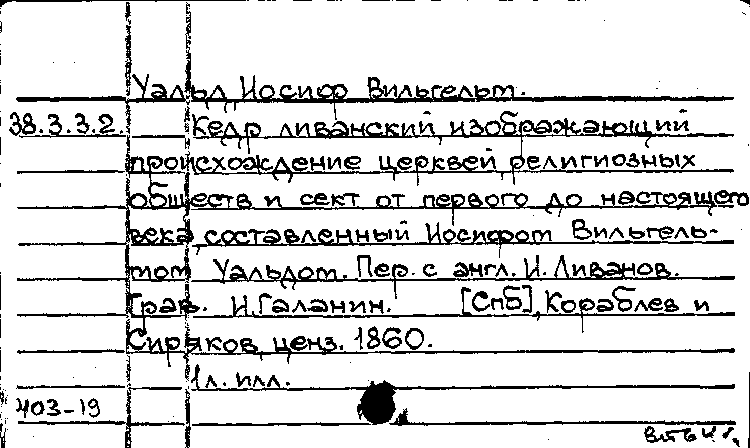 Уальд, Иосиф Вильгельм.
38.3.3.2. Кедр ливанский, изображающий
происхождение церквей, религиозных
обществ и сект от первого до настоящего
века, составленный Иосифом Вильгель-
мом Уальдом. Пер. с англ. И. Ливанов.
Грав. И. Галанин. [Спб], Кораблев и
Сиряков, ценз. 1860.
1 л. илл.
403-19